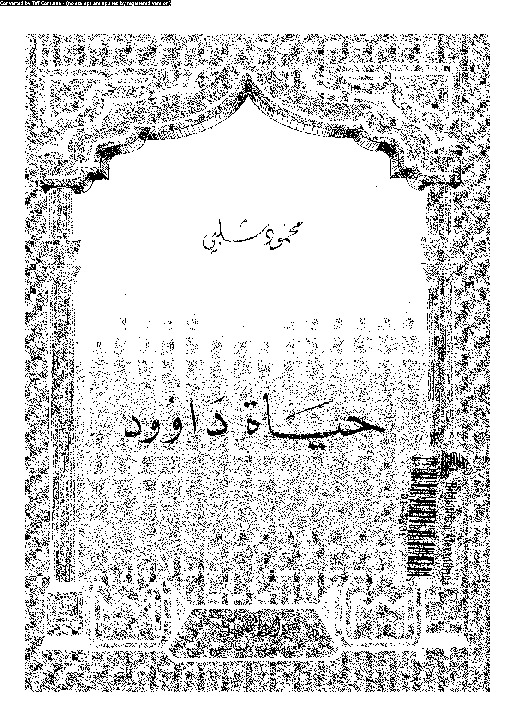 Converted by Tiff Combine - (no stamps are applied by registered version)
محمود شلبي
حياة داوود